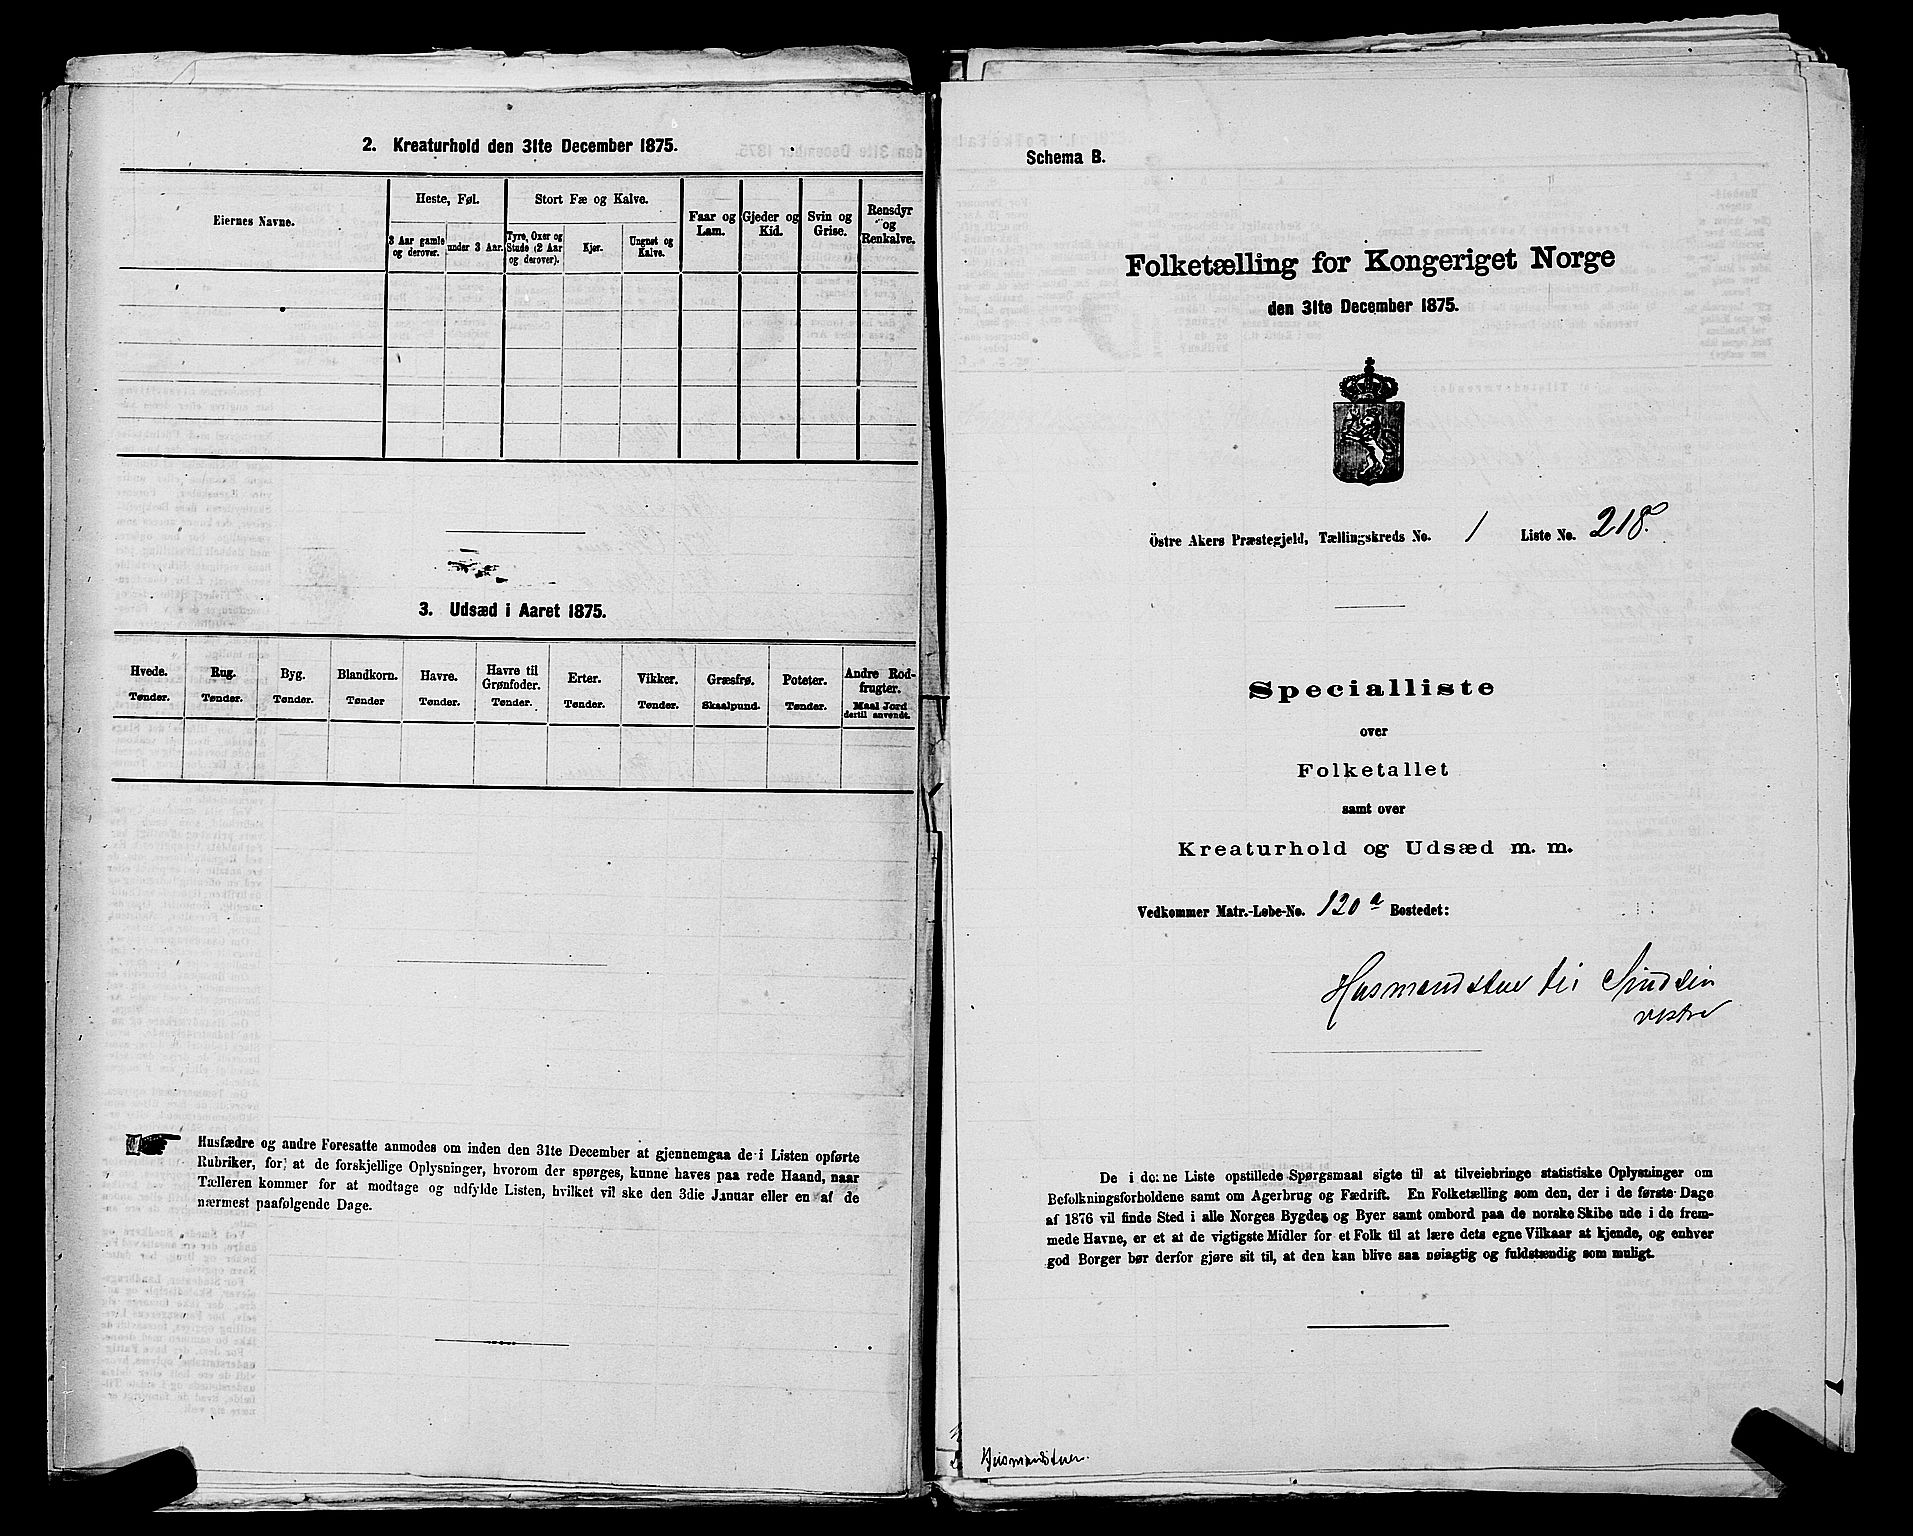 2. Kreaturhold den 31te December 1875.
Eiernes Navne.
Heste, Føl.
Stort Fæ og Kalve.
Faar og
Lam.
Gjeder og
Kid.
Svin og
Grise.
Rensdyr
og
Renkalve.
3 Aar gamle
og derover.
under 3 Aar.
Tyre, Oxer og
Stude (2 Aar
og derover).
Kjør.
Ungnøt og
Kalve.
3. Udsæd i Aaret 1875.
Hvede.
Tønder.
Rug.
Tønder.
Byg.
Tønder.
Blandkorn.
Tønder
Havre.
Tønder.
Havre til
Grønfoder.
Tønder.
Erter.
Tønder.
Vikker.
Tønder.
Græsfrø.
Skaalpund.
Poteter.
Tønder.
Andre Rod-
frugter.
Maal Jord
dertil anvendt.
Husfædre og andre Foresatte anmodes om inden den 31te December at gjennemgaa de i Listen opførte
Rubriker, for at de forskjellige Oplysninger, hvorom der spørges, kunne haves paa rede Haand, naar
Tælleren kommer for at modtage og udfylde Listen, hvilket vil ske den 3die Januar eller en af de
nærmest paafølgende Dage.
Schema B.
Folketælling for Kongeriget Norge
den 31te December 1875.
Östre Akers Præstegjeld, Tællingskreds No. 1 Liste No. 218.
Specialliste
over
Folketallet
samt over
Kreaturhold og Udsæd m. m.
Vedkommer Matr.-Løbe-No. 120 a Bostedet:
Husmandstue til Sindsen
vestre
De i denne Liste opstillede Spørgsmaal sigte til at tilveiebringe statistiske Oplysninger om
Befolkningsforholdene samt om Agerbrug og Fædrift. En Folketælling som den, der i de første Dage
af 1876 vil finde Sted i alle Norges Bygder og Byer samt ombord paa de norske Skibe ude i de frem-
mede Havne, er et at de vigtigste Midler for et Folk til at lære dets egne Vilkaar at kjende, og enhver
god Borger bør derfor gjøre sit til, at den kan blive saa nøiagtig og fuldstændig som muligt.
Husmandstuen.